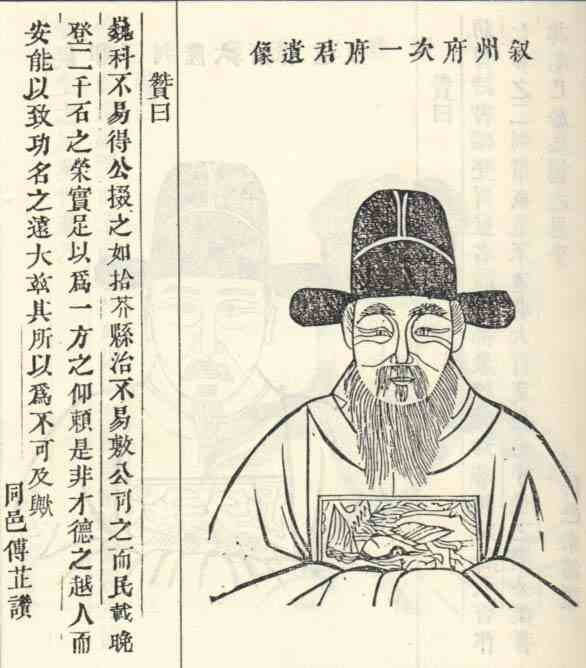 叙州府次一府君遺像
贊曰
巍科不易得公掇之如拾芥縣治不易敷公可之而民戴晚
登二千石之榮實足以爲一方之仰賴是非才德之越人而
安能以致功名之遠大玆其所以爲不可及歟
同邑傅芷讚